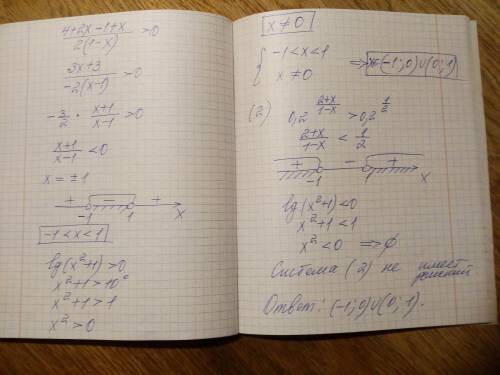 4+2x-1+x / 2(1-x) > 0
3x+3 / -2(x-1) > 0
-3/2 · x+1 / x-1 > 0
x+1 / x-1 < 0
x = ±1
+ - +
-1 1 x
-1<x<1
lg(x²+1)>0
x²+1>10⁰
x²+1>1
x²>0
x≠0
{ -1<x<1
x≠0 => x∈(-1;0)∪(0;1)
(2) 0,2^(2+x / 1-x) > 0,2^(1/2)
2+x / 1-x < 1/2
+ - +
-1 1 x
lg(x²+1)<0
x²+1<1
x²<0 => ∅
Система (2) не имеет
решений
Ответ: (-1;0)∪(0;1).